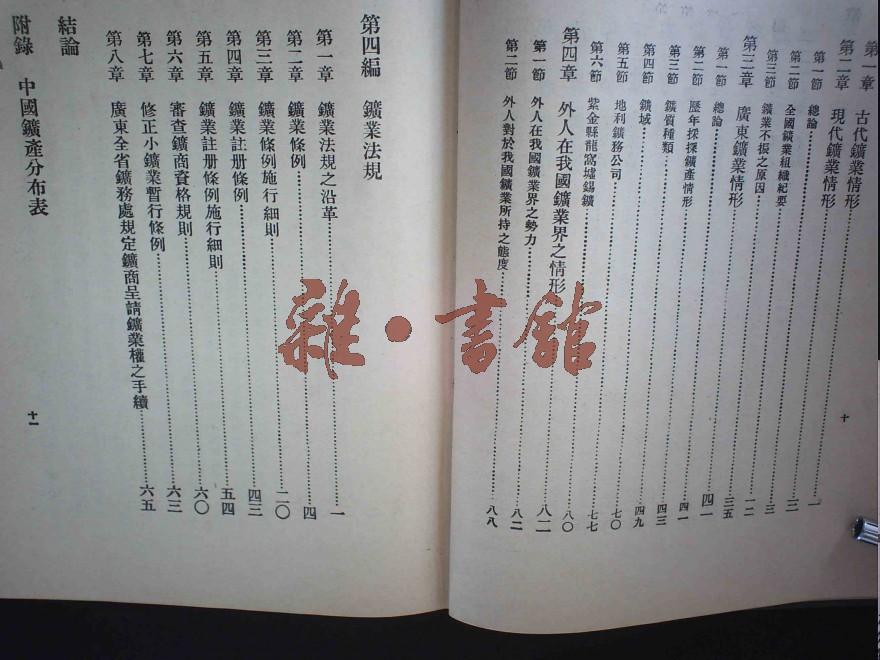 第一章 古代鑛業情形……一
第二章 現代鑛業情形……三
第一節 總論……三
第二節 全國鑛業組織紀要……一二
第三節 鑛業不振之原因……三五
第三章 廣東鑛業情形……四一
第一節 總論……四一
第二節 歷年採探鑛產情形……四三
第三節 鑛質種類……四九
第四節 鑛域……七〇
第五節 地利鑛務公司……七七
第六節 紫金縣龍窩墟錫鑛……八〇
第四章 外人在我國鑛業界之情形……八二
第一節 外人在我國鑛業界之勢力……八二
第二節 外人對於我國鑛業所持之態度……八八
十
第四編 鑛業法規
第一章 鑛業法規之沿革……一
第二章 鑛業條例……四
第三章 鑛業條例施行細則……二〇
第四章 鑛業註册條例……四三
第五章 鑛業註册條例施行細則……五四
第六章 審查鑛商資格規則……六〇
第七章 修正小鑛業暫行條例……六三
第八章 廣東全省鑛務處規定鑛商呈請鑛業權之手續……六五
結論
附錄 中國鑛產分布表
十一
雜·書館